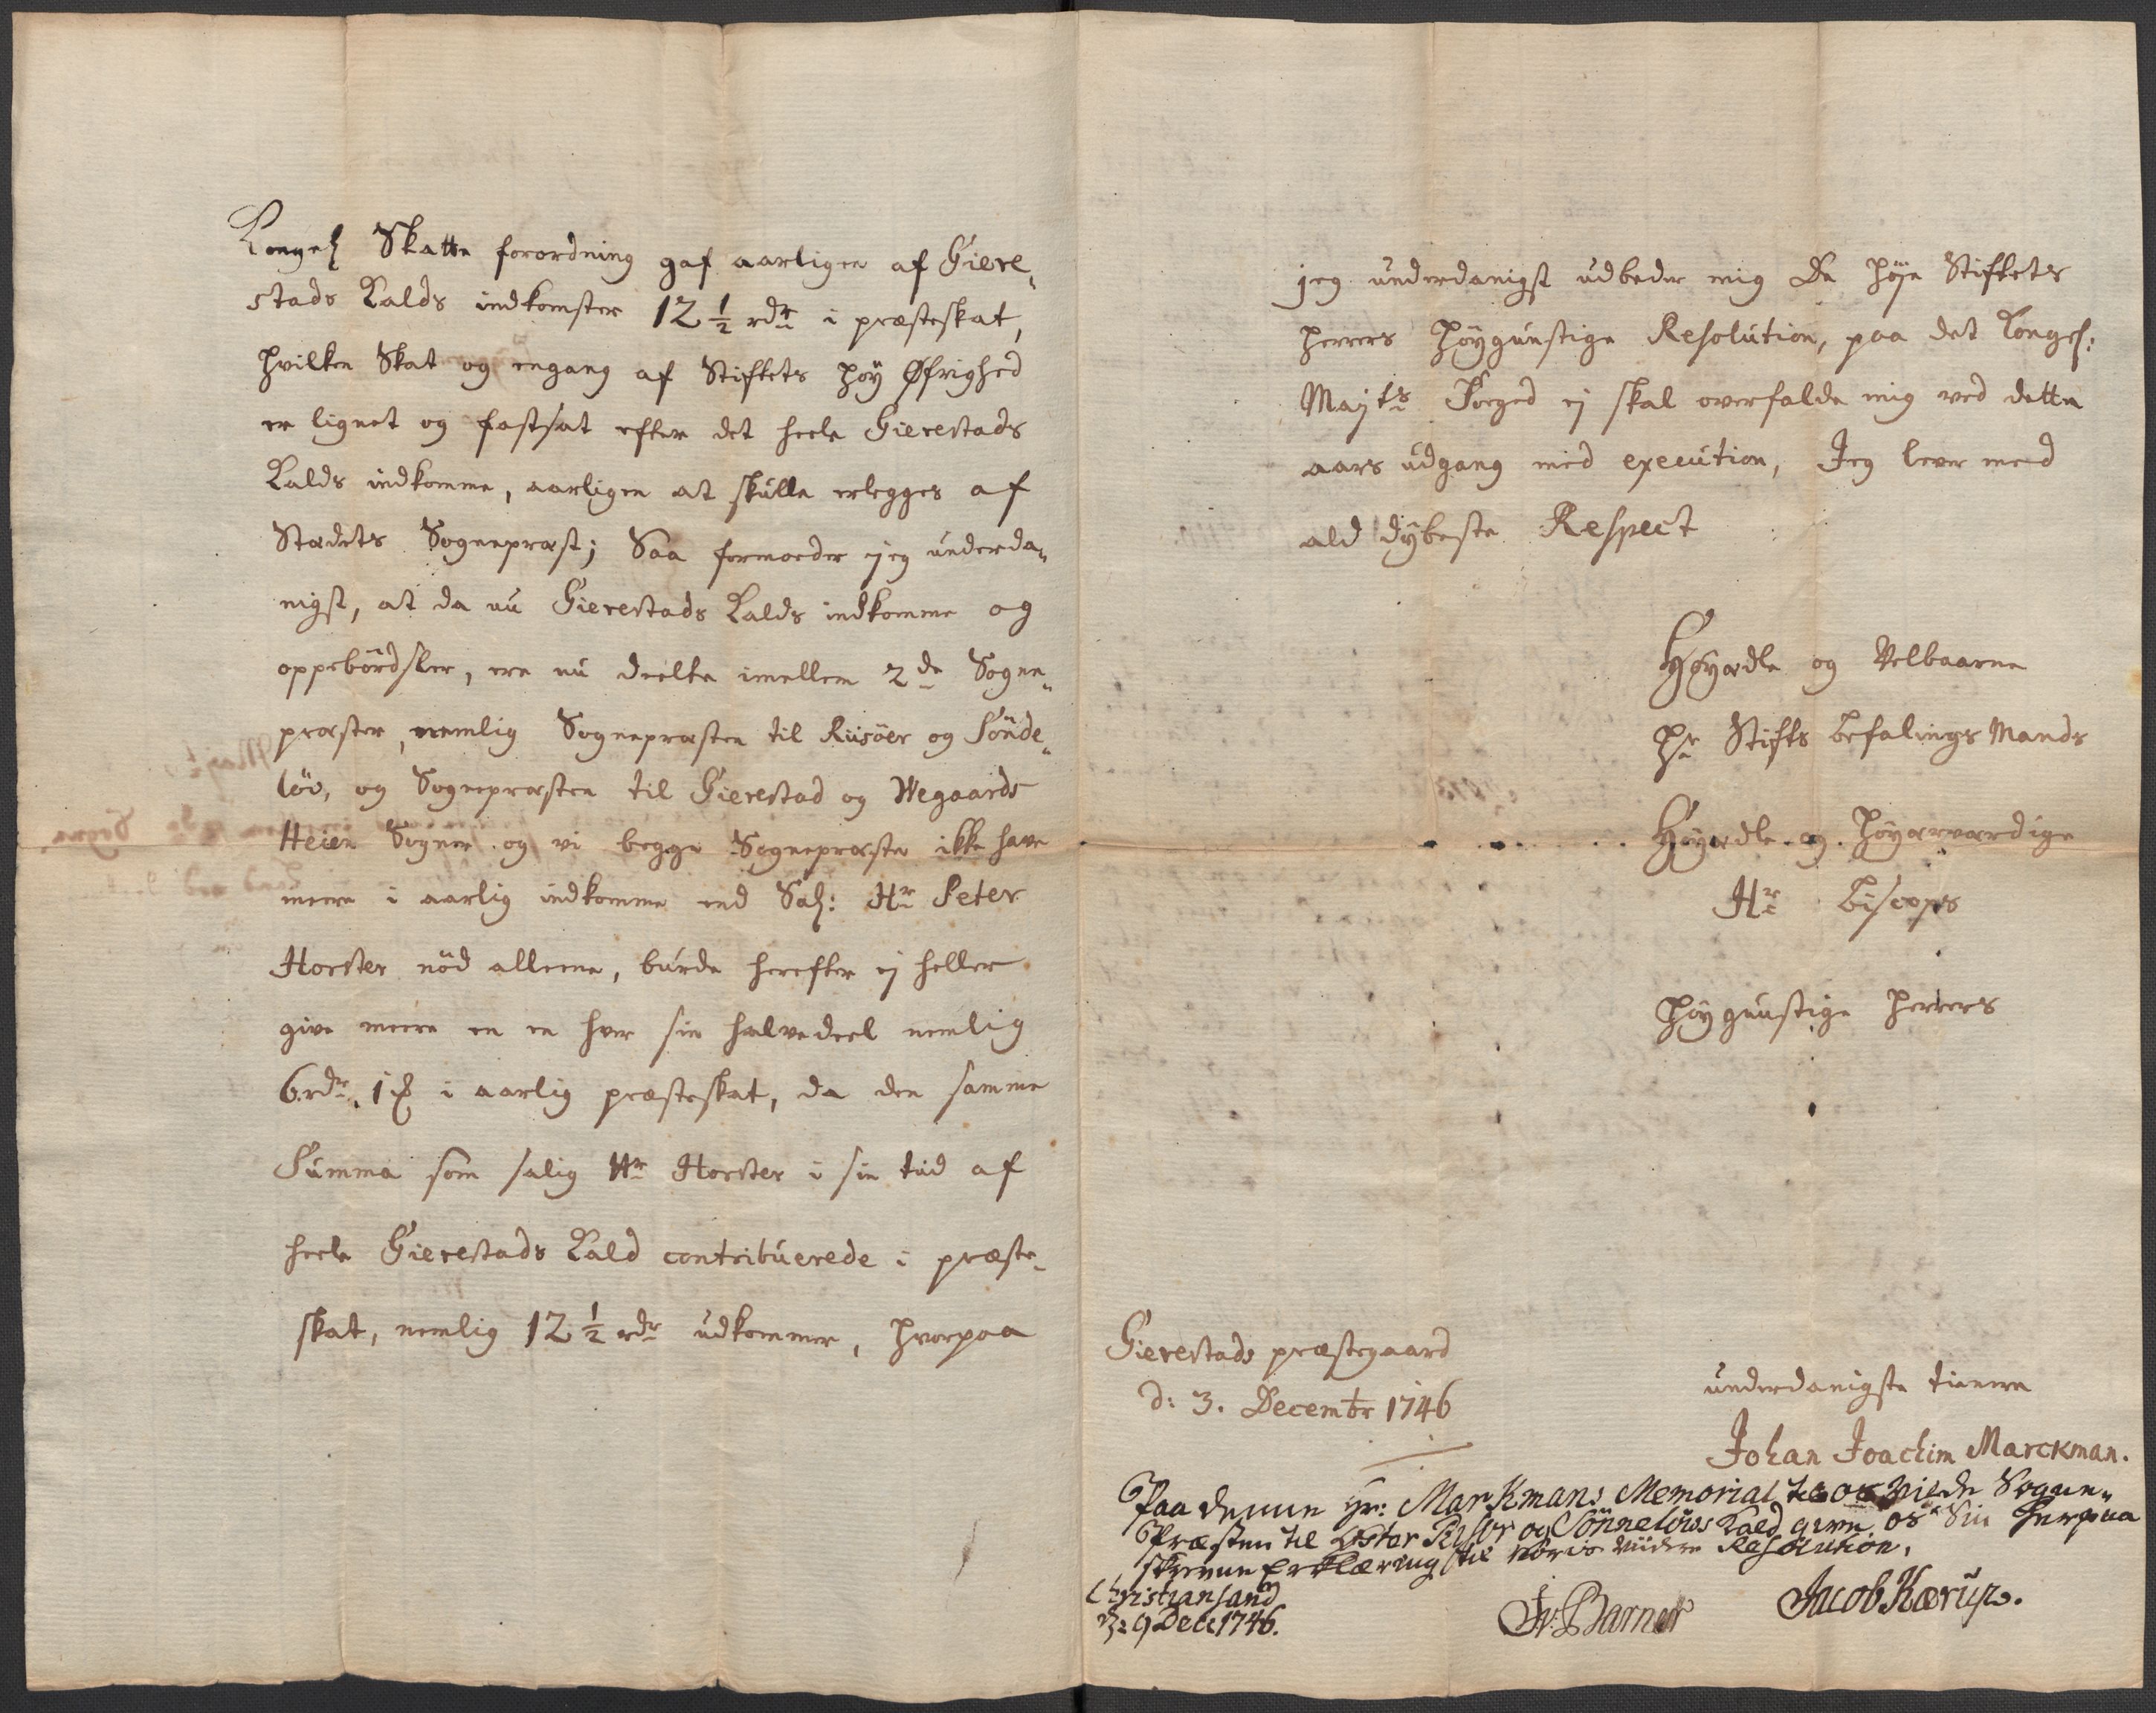 Kongel Skatte forordning gaf aarligen af Giere„
stads Kalds indkomster 12½ rdr i præsteskat,
hvilken Skat og engang af Stiftets høy Øfrighed
er lignet og fastsat efter det heele Gierestads
Kalds indkomme, aarligen at skulle erlegges af
Stædets Sognepræst; Saa formoeder jeg underda„
nigst, at da nu Gierestads Kalds indkomme og
oppebördsler, ere nu deelte imellem 2de Sogne„
præster, nemlig Sognepræsten til Riisöer og Sönde„
löv, og Sognepræsten til Gierestad og Wegaards
Heien Sogner og vi begge Sognepræster ikke have
meere i aarlig indkomme end Sal: Hr Peter
Horster nöd alleene, burde herefter ej heller
give meere en en hver sin halvedeel nemlig
6 rdr. 1 ℔ i aarlig præsteskat, da den samme
Summa som salig Hr Horster i sin tiid af
heele Gierestads Kald contribuerede i præste„
skat, nemlig 12½ rdr udkommer, hvorpaa
jeg underdanigst udbeder mig De høje Stiftets
herrers høygunstige Resolution, paa det Kongel:
Majts Foged ej skal overfalde mig ved dette
aars udgang med execution, Jeg lever med
ald dybeste Respect
Høyædle og Velbaarne
Hr Stifts Befalings Mands
Høyædle og Høyærværdige
Hr Biscops
høygunstige herrers
Gierestads præstegaard
d: 3. Decembr 1746
underdanigste tienere
Johan Joachim Marckman.
Paa denne Hr: Markmans Memorial Sogne„
Præsten til Öster Riisöer og Sönnelöws Kald give os Sin herpaa
skrevne Erklæring til vores viidere Resolution.
Christiansand
d: 9 Dec 1746.
Jv. Barner Jacob Kærup.